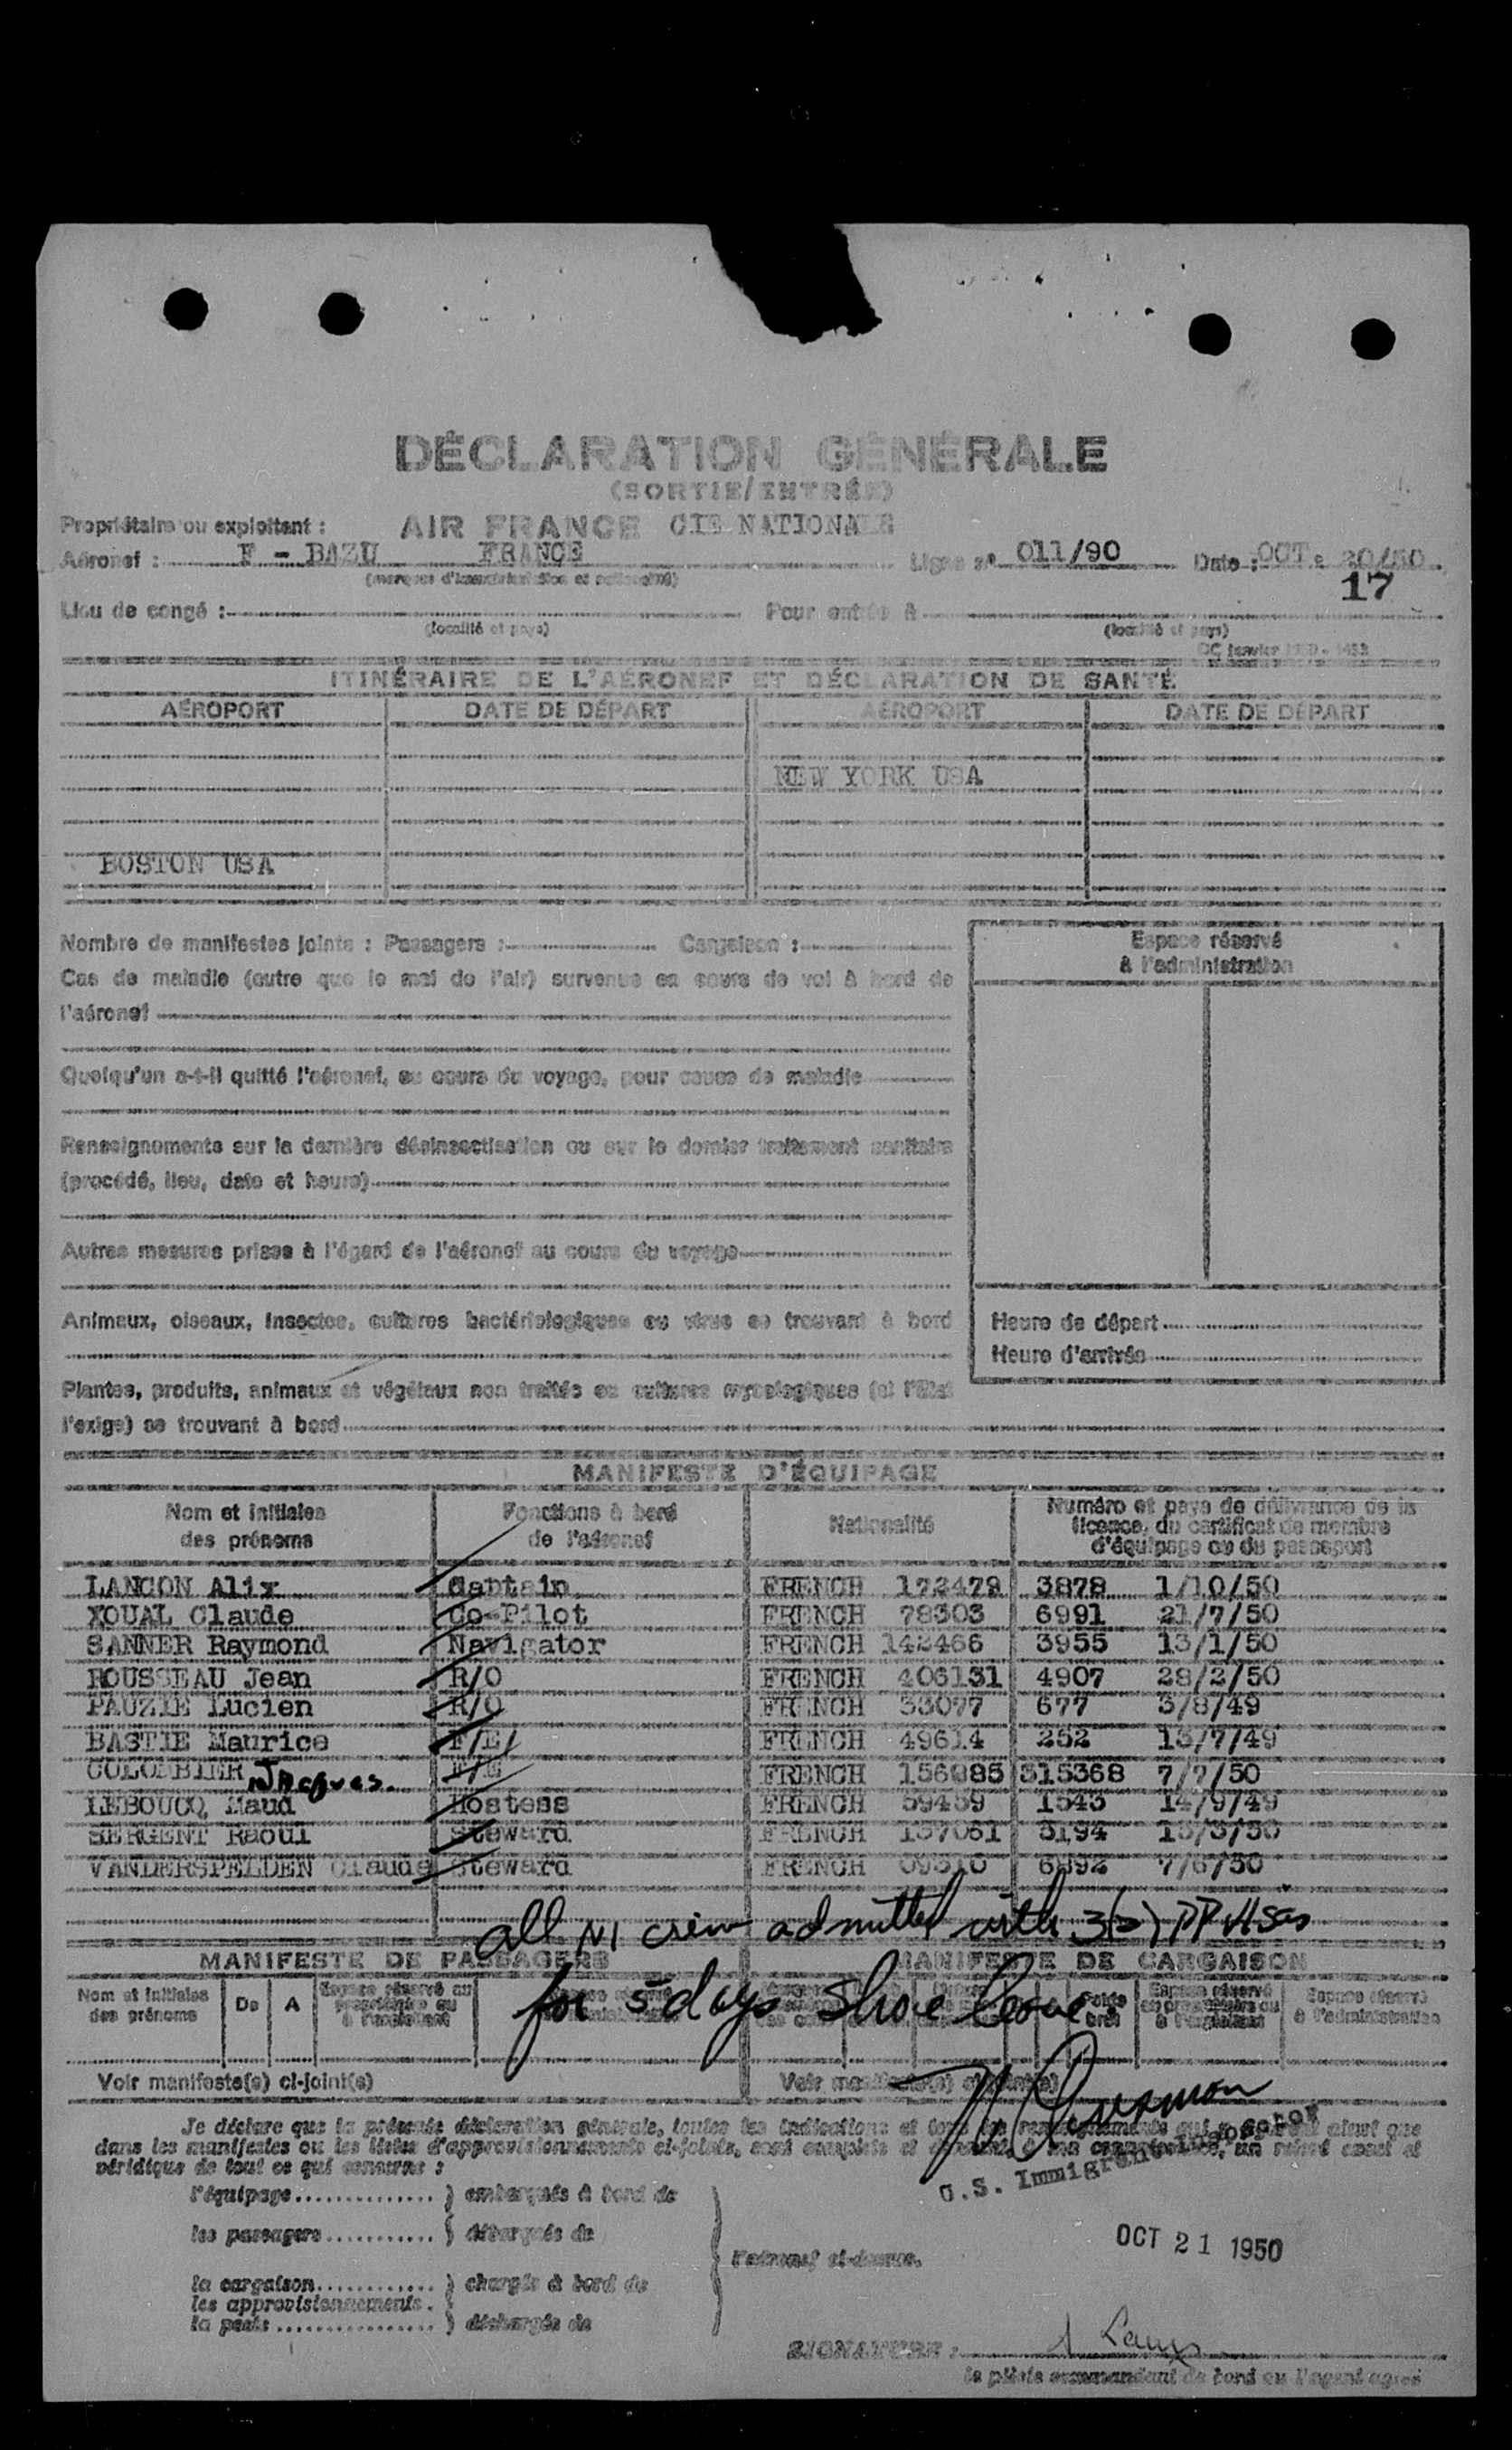 DÉCLARATION GÉNÉRALE
(SORTIE/ENTRÉE)
Propriétaire ou exploitant : AIR FRANCE CIE NATIONALE
Aéronef : F - BAZU FRANCE Ligne nº 011/90 Date : OCT. 20/50
(marques d'immatriculation et nationalité)
17
Lieu de congé : Pour entrée à
(localité et pays) (localité et pays)
ITINÉRAIRE DE L'AÉRONEF ET DÉCLARATION DE SANTÉ
AÉROPORT DATE DE DÉPART AÉROPORT DATE DE DÉPART
NEW YORK USA
BOSTON USA
Nombre de manifestes joints : Passagers : Cargaison :
Espace réservé
à l'administration
Cas de maladie (autre que le mal de l'air) survenus en cours de vol à bord de
l'aéronef
Quelqu'un a-t-il quitté l'aéronef, au cours du voyage, pour cause de maladie
Renseignements sur la dernière désinsectisation ou sur le dernier traitement sanitaire
(procédé, lieu, date et heure)
Autres mesures prises à l'égard de l'aéronef au cours du voyage
Animaux, oiseaux, insectes, cultures bactériologiques ou virus se trouvant à bord
Heure de départ
Heure d'arrivée
Plantes, produits, animaux et végétaux non traités ou cultures mycologiques (si l'État
l'exige) se trouvant à bord
MANIFESTE D'ÉQUIPAGE
Nom et initiales
des prénoms
Fonctions à bord
de l'aéronef
Nationalité
Numéro et pays de délivrance de la
licence, du certificat de membre
d'équipage ou du passeport
LANCON Alix Captain FRENCH 172479 3878 1/10/50
XOUAL Claude Co-Pilot FRENCH 78303 6991 21/7/50
SANNER Raymond Navigator FRENCH 142466 3955 13/1/50
ROUSSEAU Jean R/O FRENCH 406131 4907 28/2/50
PAUZIE Lucien R/O FRENCH 33077 677 3/8/49
BASTIE Maurice F/E FRENCH 49614 252 13/7/49
COLOMBIER Jacques. F/E FRENCH 156885 315368 7/7/50
LEBOUCQ Maud Hostess FRENCH 59459 1543 14/9/49
SERGENT Raoul Steward FRENCH 137061 3194 13/3/50
VANDERSPELDEN Claude Steward FRENCH 6892 7/6/50
all crew admitted with
MANIFESTE DE PASSAGERS MANIFESTE DE CARGAISON
for 5 days Shore leave.
Nom et initiales
des prénoms
De A
Espace réservé au
propriétaire ou
à l'exploitant
Espace réservé
à l'administration
Voir manifeste(s) ci-joint(s) Voir manifeste(s) ci-joint(s)
Je déclare que la présente déclaration générale, toutes les indications et tous les renseignements
dans les manifestes ou les listes d'approvisionnements ci-joints, sont complets et
véridique de tout ce qui concerne :
U.S. Immigrant Inspector
l'équipage } embarqués à bord de
les passagers } débarqués de
l'aéronef ci-dessus.
OCT 21 1950
la cargaison } chargés à bord de
les approvisionnements
la poste } déchargés de
SIGNATURE :
le pilote commandant de bord ou l'agent agréé